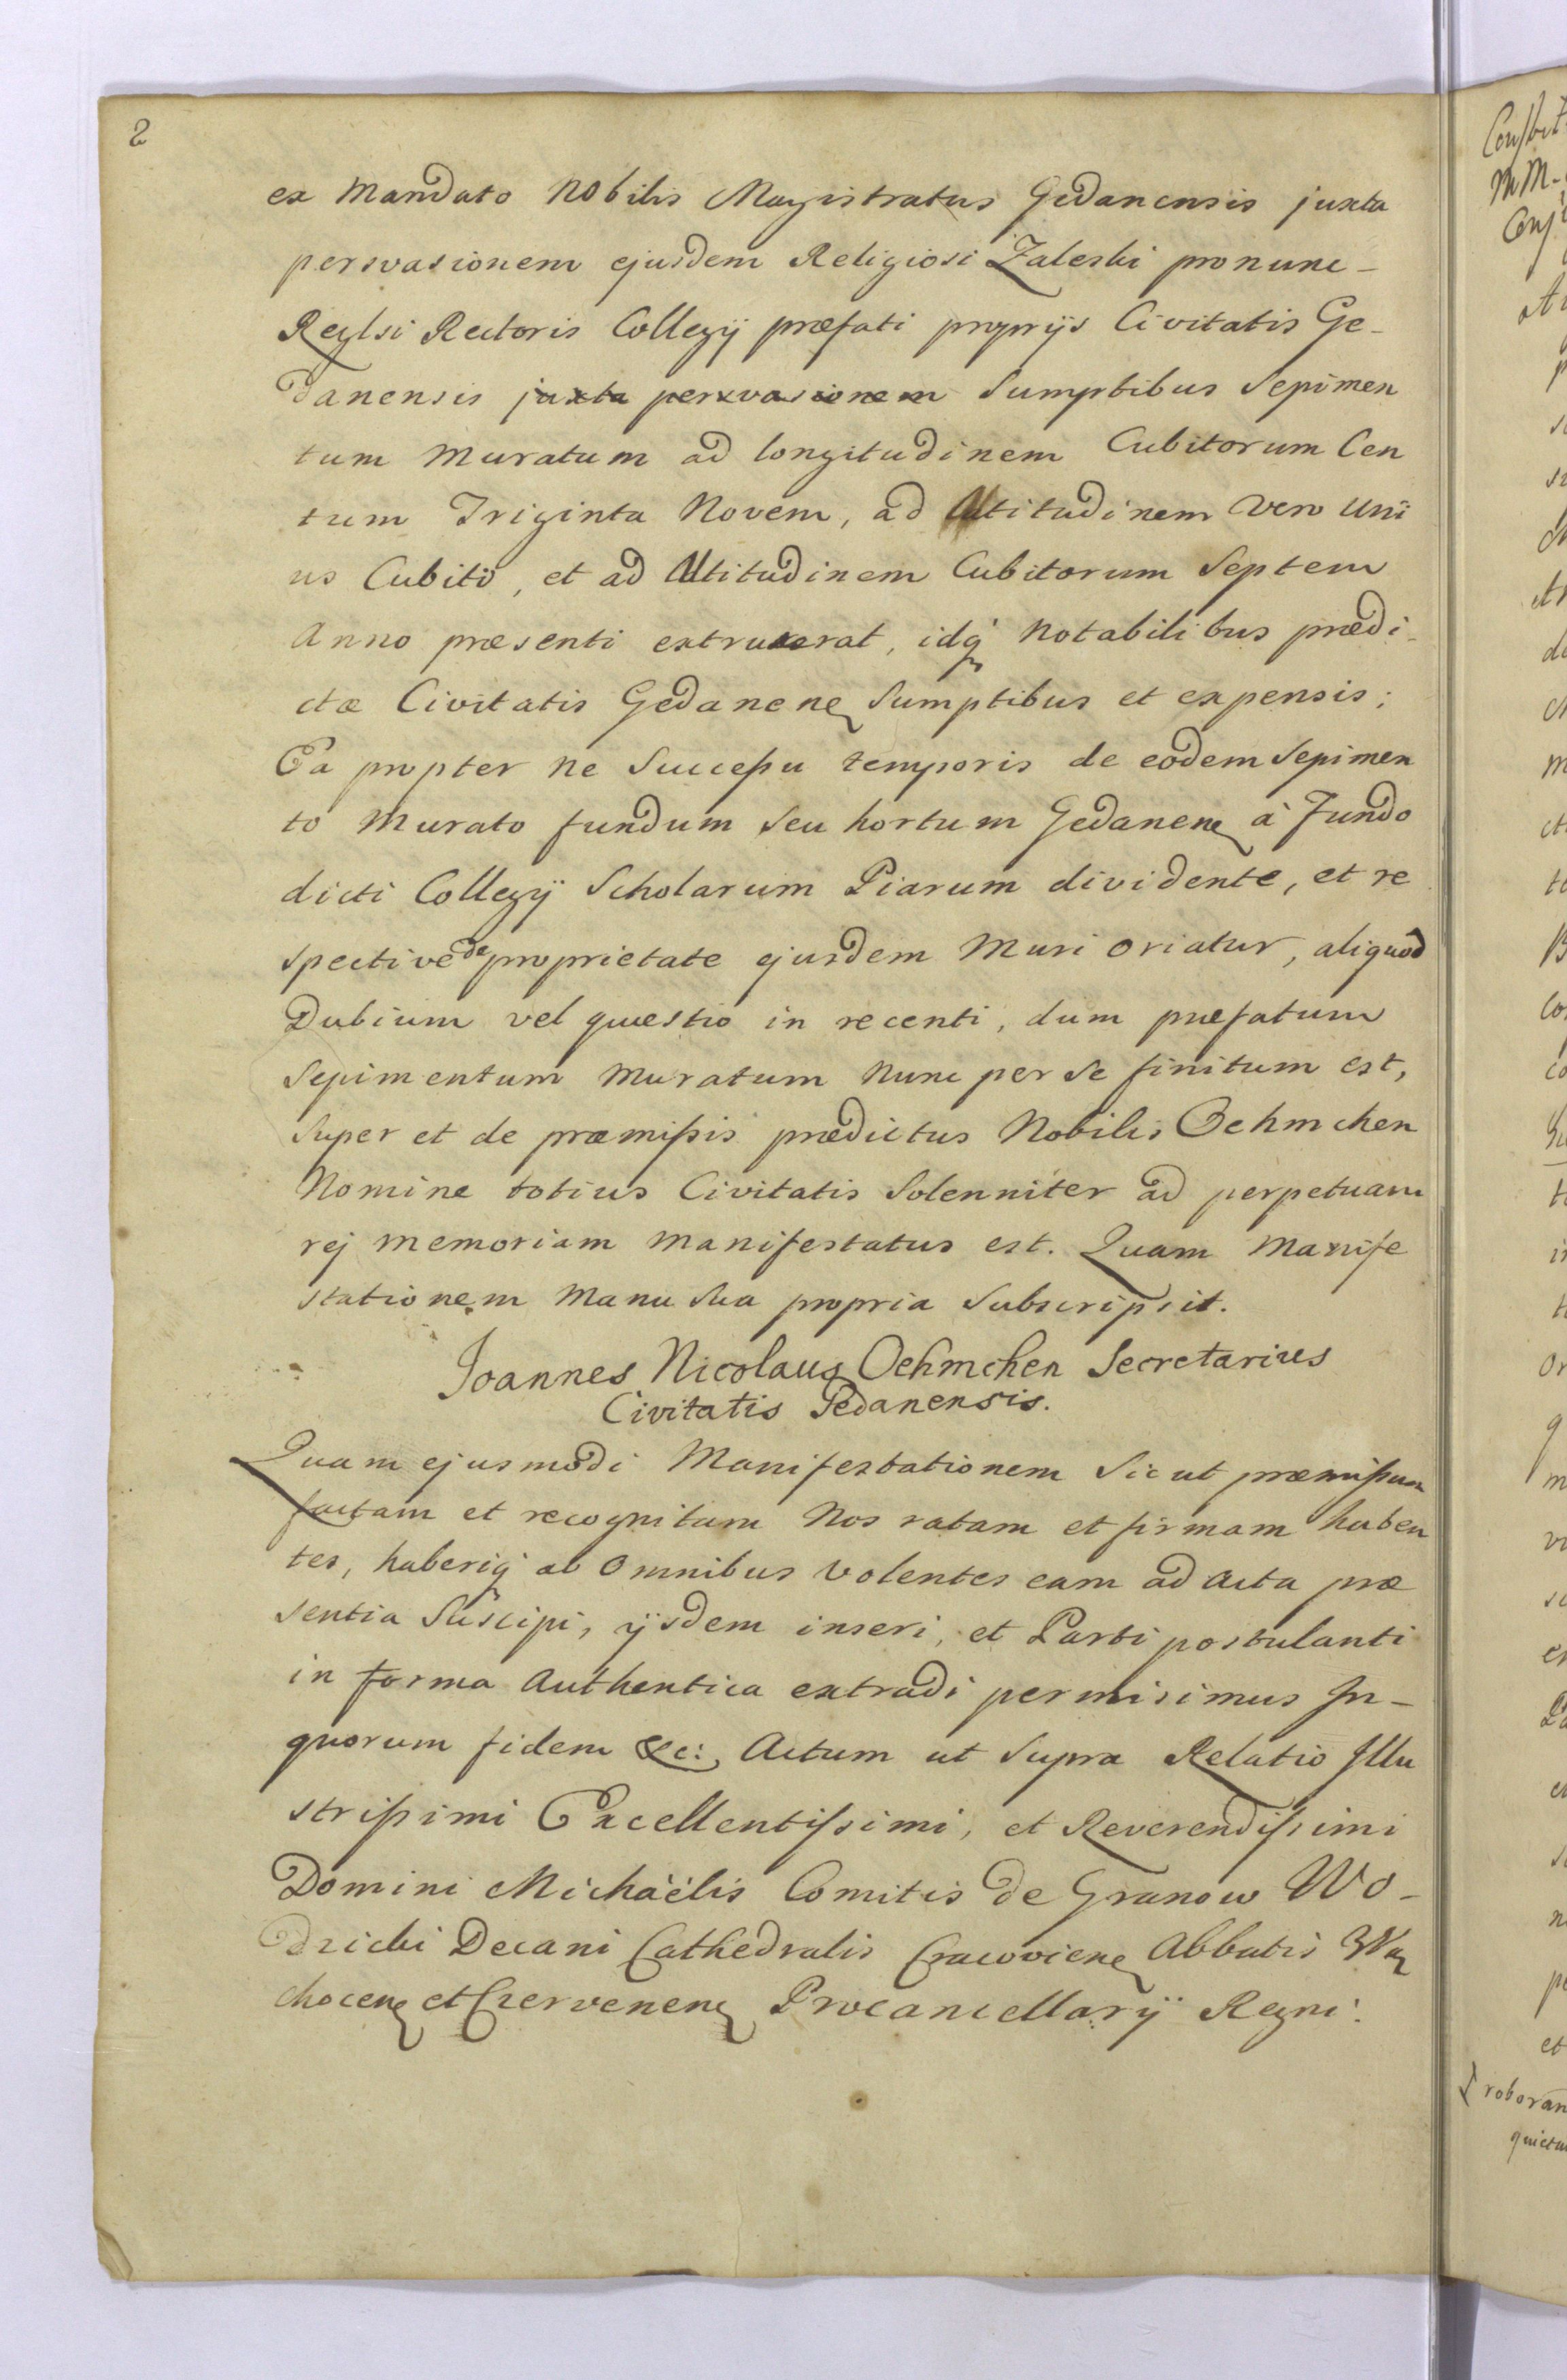 2
ex Mandato Nobilis Magistratus Gedanensis juxta
persvasionem ejusdem Religiosi Zaleski pro nunc -
Reglsi Rectoris Collegij præfati proprijs Civitatis Ge-
danensis juxta persvasionem Sumptibus Sepimen
tum Muratum ad longitudinem Cubitorum Cen
tum Triginta Novem, ad Altitudinem vero Uni
us Cubiti, et ad Altitudinem Cubitorum Septem
Anno præsenti extruxerat, idq Notabilibus prædi-
ctæ Civitatis Gedanen Sumptibus et expensis;
Ea propter ne Successu temporis de eodem Sepimen
to Murato fundum seu hortum Gedanen à Fundo
dicti Collegij Scholarum Piarum dividente, et re
spective de proprietate ejusdem Muri oriatur, aliquod
Dubium vel quæstio in recenti, dum præfatum
Sepimentum Muratum Nunc per se finitum est,
Super et de præmissis prædictus Nobilis Oehmchen
Nomine totius Civitatis Solenniter ad perpetuam
rej memoriam manifestatus est. Quam Manife
stationem Manu Sua propria Subscripsit.
Joannes Nicolaus Oehmchen Secretarius
Civitatis Gedanensis.
Quam ejusmodi Manifestationem Sic ut præmissum
factam et recognitam Nos ratam et firmam haben
tes, haberiq ab Omnibus Volentes eam ad Acta præ
sentia Suscipi, ijsdem inseri, et Parti postulanti
in forma Authentica extradi permisimus In-
quorum fidem &c: Actum ut Supra Relatio Illu
strissimi Excellentissimi, et Reverendissimi
Domini Michaëlis Comitis de Granow Wo-
dzicki Decani Cathedralis Cracovien Abbatis Wa
chocen et Czervenen Procancellarij Regni.